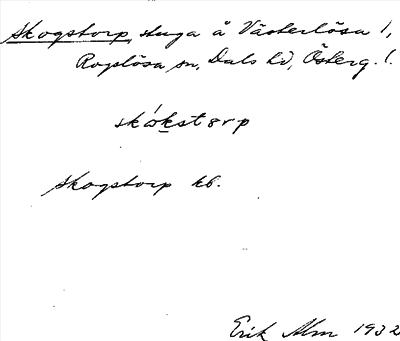 Skogstorp, stuga å Västerlösa 1,
Rogslösa sn, Dals hd, Österg. l.
skókstorp
Skogstorp kb.
Erik Alm 1932